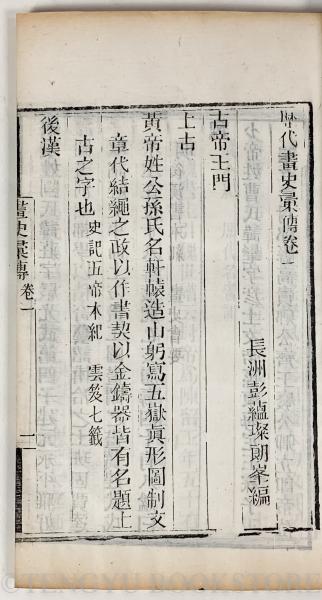 歷代畫史彙傳卷一
長洲彭蘊璨朗峯編
古帝王門
上古
黃帝姓公孫氏名軒轅造山躬寫五嶽眞形圖制文
章代結繩之政以作書契以金鑄器皆有名題上
古之字也 史記五帝本紀 雲笈七籤
後漢
畫史彙傳 卷一 一
TENGYU BOOKSTORE